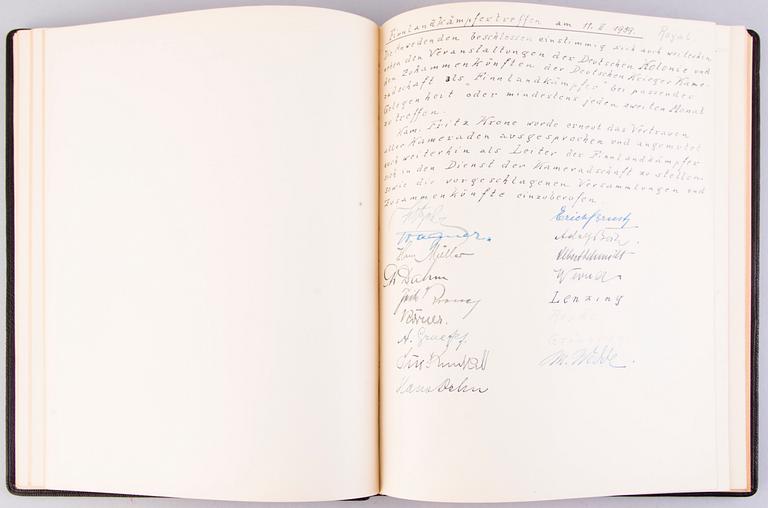 Finnlandkämpfertreffen am 11. II. 1939. Royal.
Die Anwedenden beschlossen einstimmig sich auch weiterhin
neben den Veranstaltungen der Deutschen Kolonie und
den Zusammenkünften der Deutschen Krieger Kame-
radschaft als "Finnlandkämpfer" bei passender
Gelegenheit oder mindestens jeden zweiten Monat
zu treffen.
Kam. Fritz Krone wurde erneut das Vertrauen
aller Kameraden ausgesprochen und angemutet
auch weiterhin als Leiter der Finnlandkämpfer
sich in den Dienst der Kameradschaft zu stellen
sowie die vorgeschlagenen Versammlungen und
Zusammenkünfte einzuberufen.
Erich Ernst
Wagner.
Müller
Albert Schmidt
Dahm
Werner
Lenzing
Körner.
A. Graefe
M. Wedde.
Hans